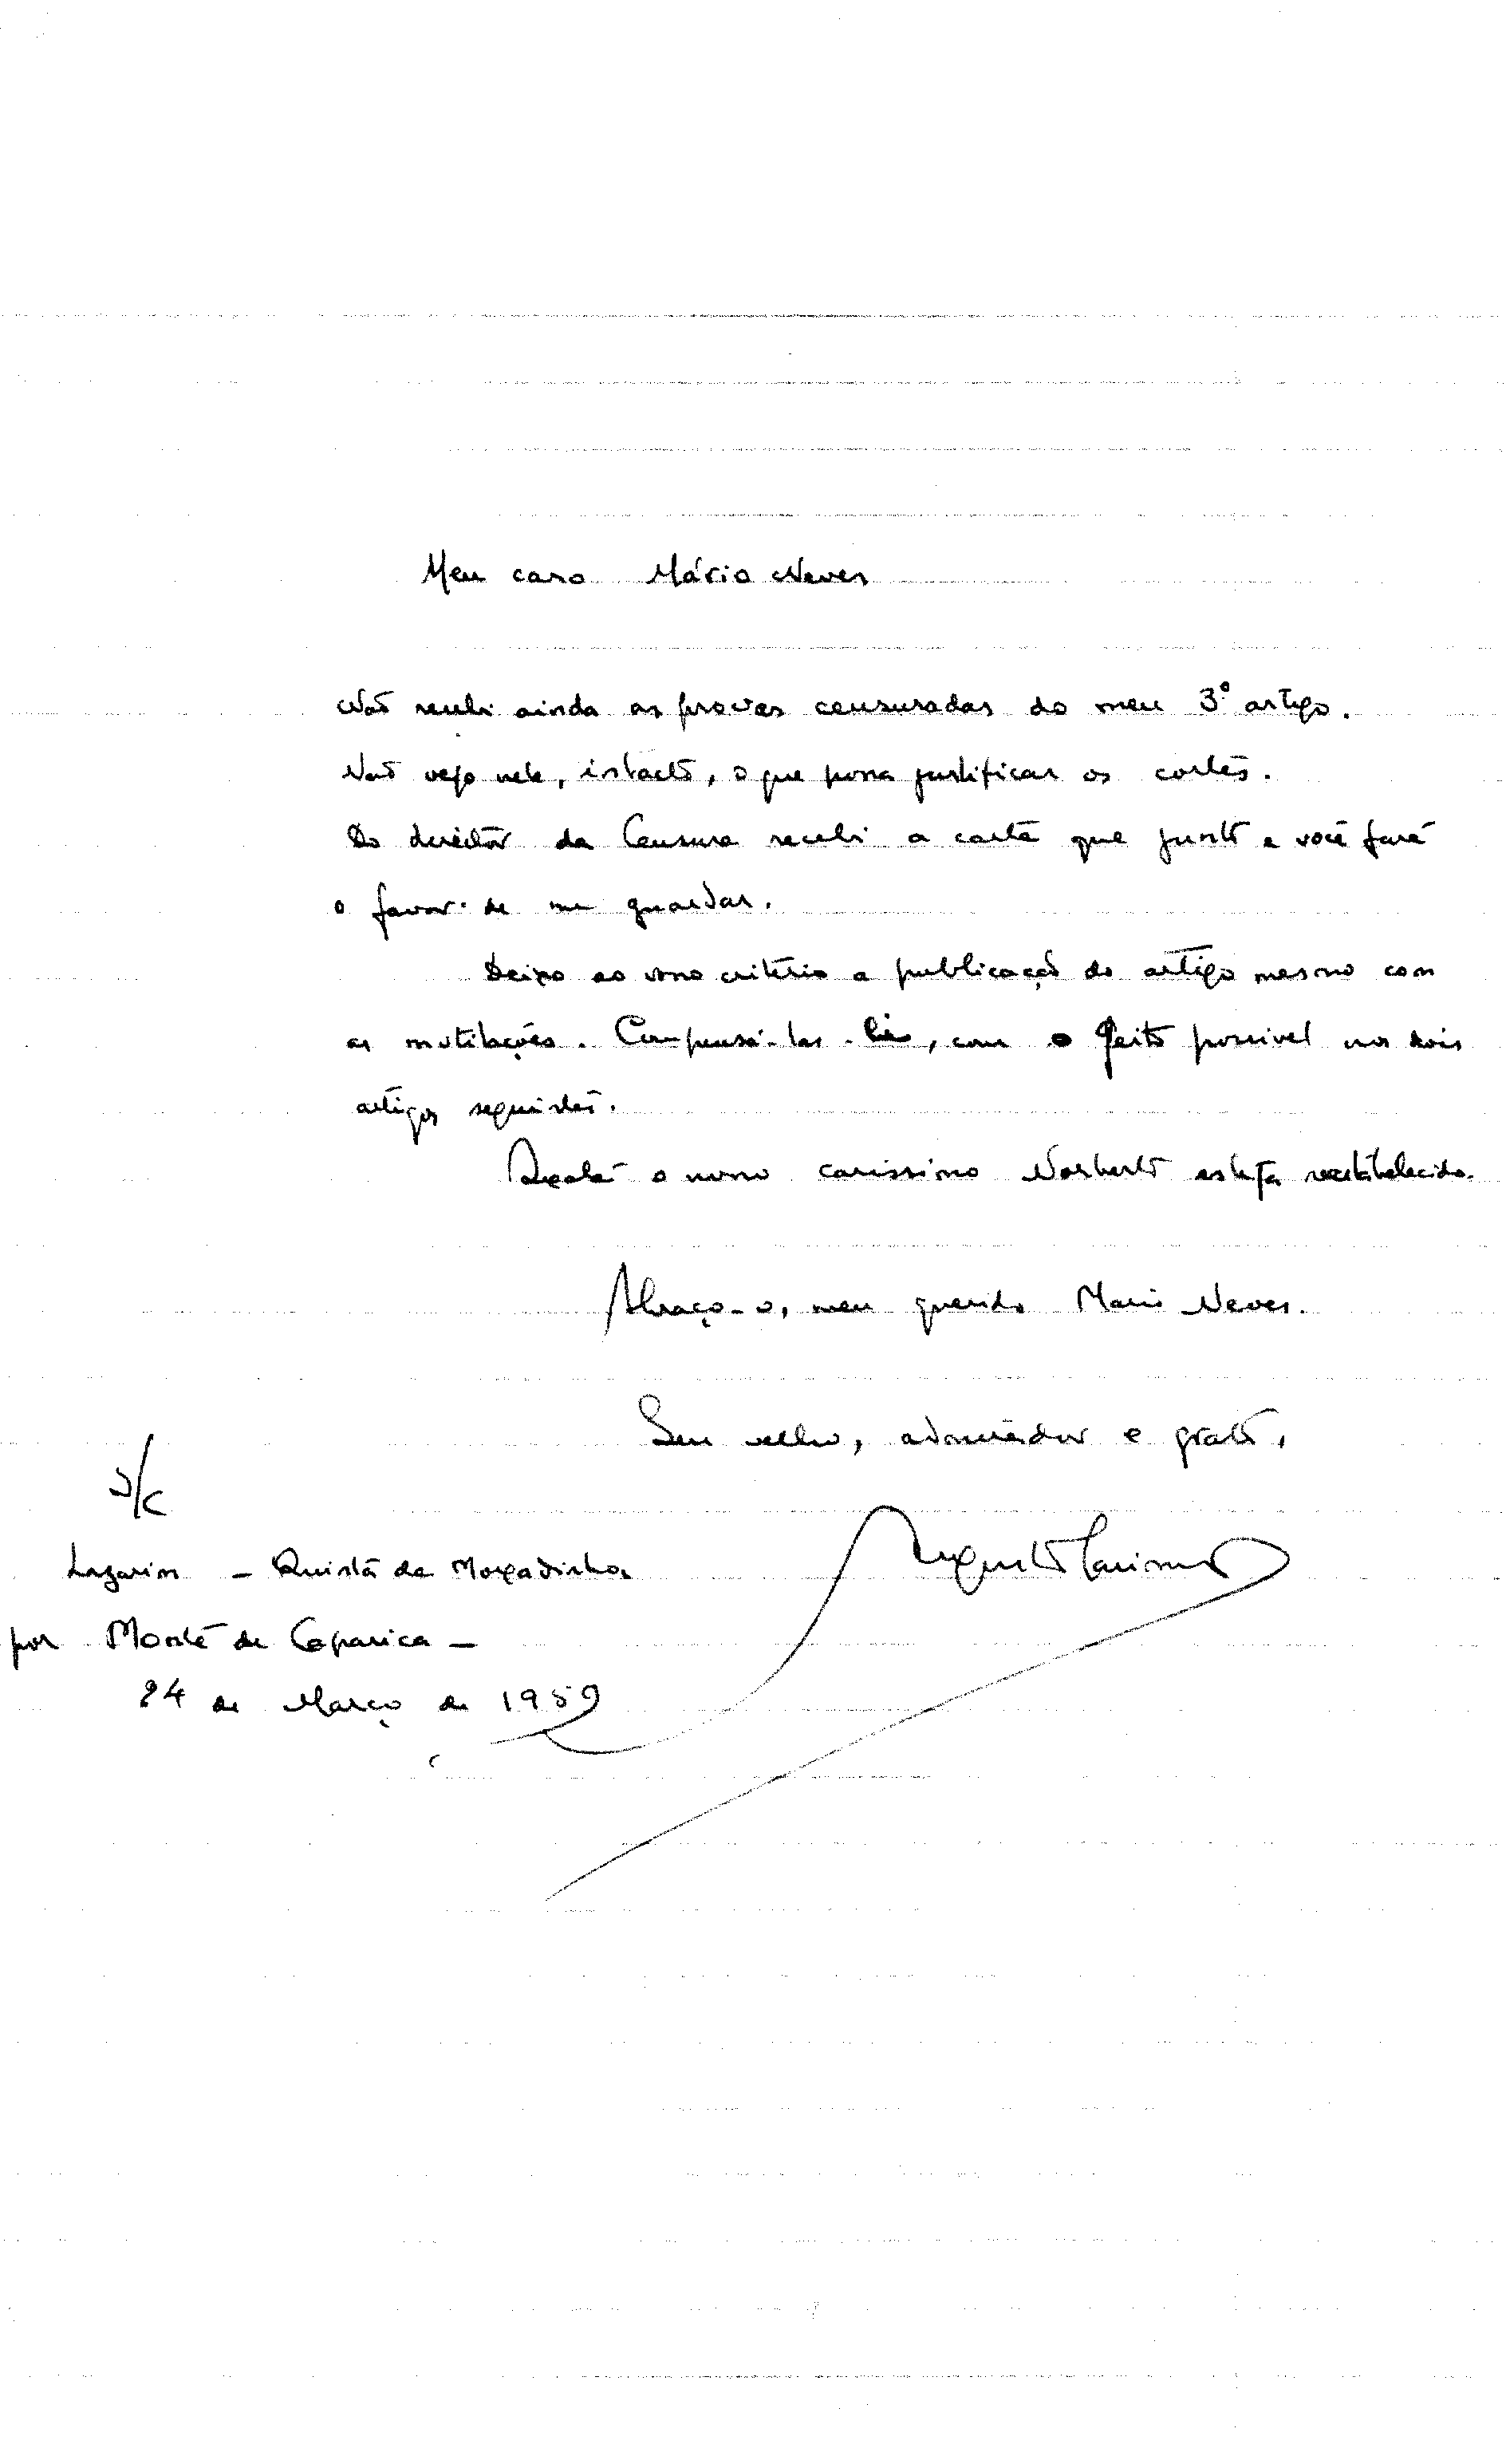 Meu caro Mário Neves
Não recebi ainda as provas censuradas do meu 3º artigo.
Não vejo nele, intacto, o que possa justificar os cortes.
Do director da Censura recebi a carta que junto e você fará
o favor de me guardar.
Deixo ao vosso critério a publicação do artigo mesmo com
as mutilações. Compensá-las-ei, com o jeito possivel nos dois
artigos seguintes.
Oxalá o nosso carissimo Norberto esteja restabelecido.
Abraço-o, meu querido Mario Neves.
Seu velho, admirador e grato,
S/C
Lazarim - Quinta da Morgadinha
por Monte de Caparica -
24 de Março de 1959
Augusto Casimiro